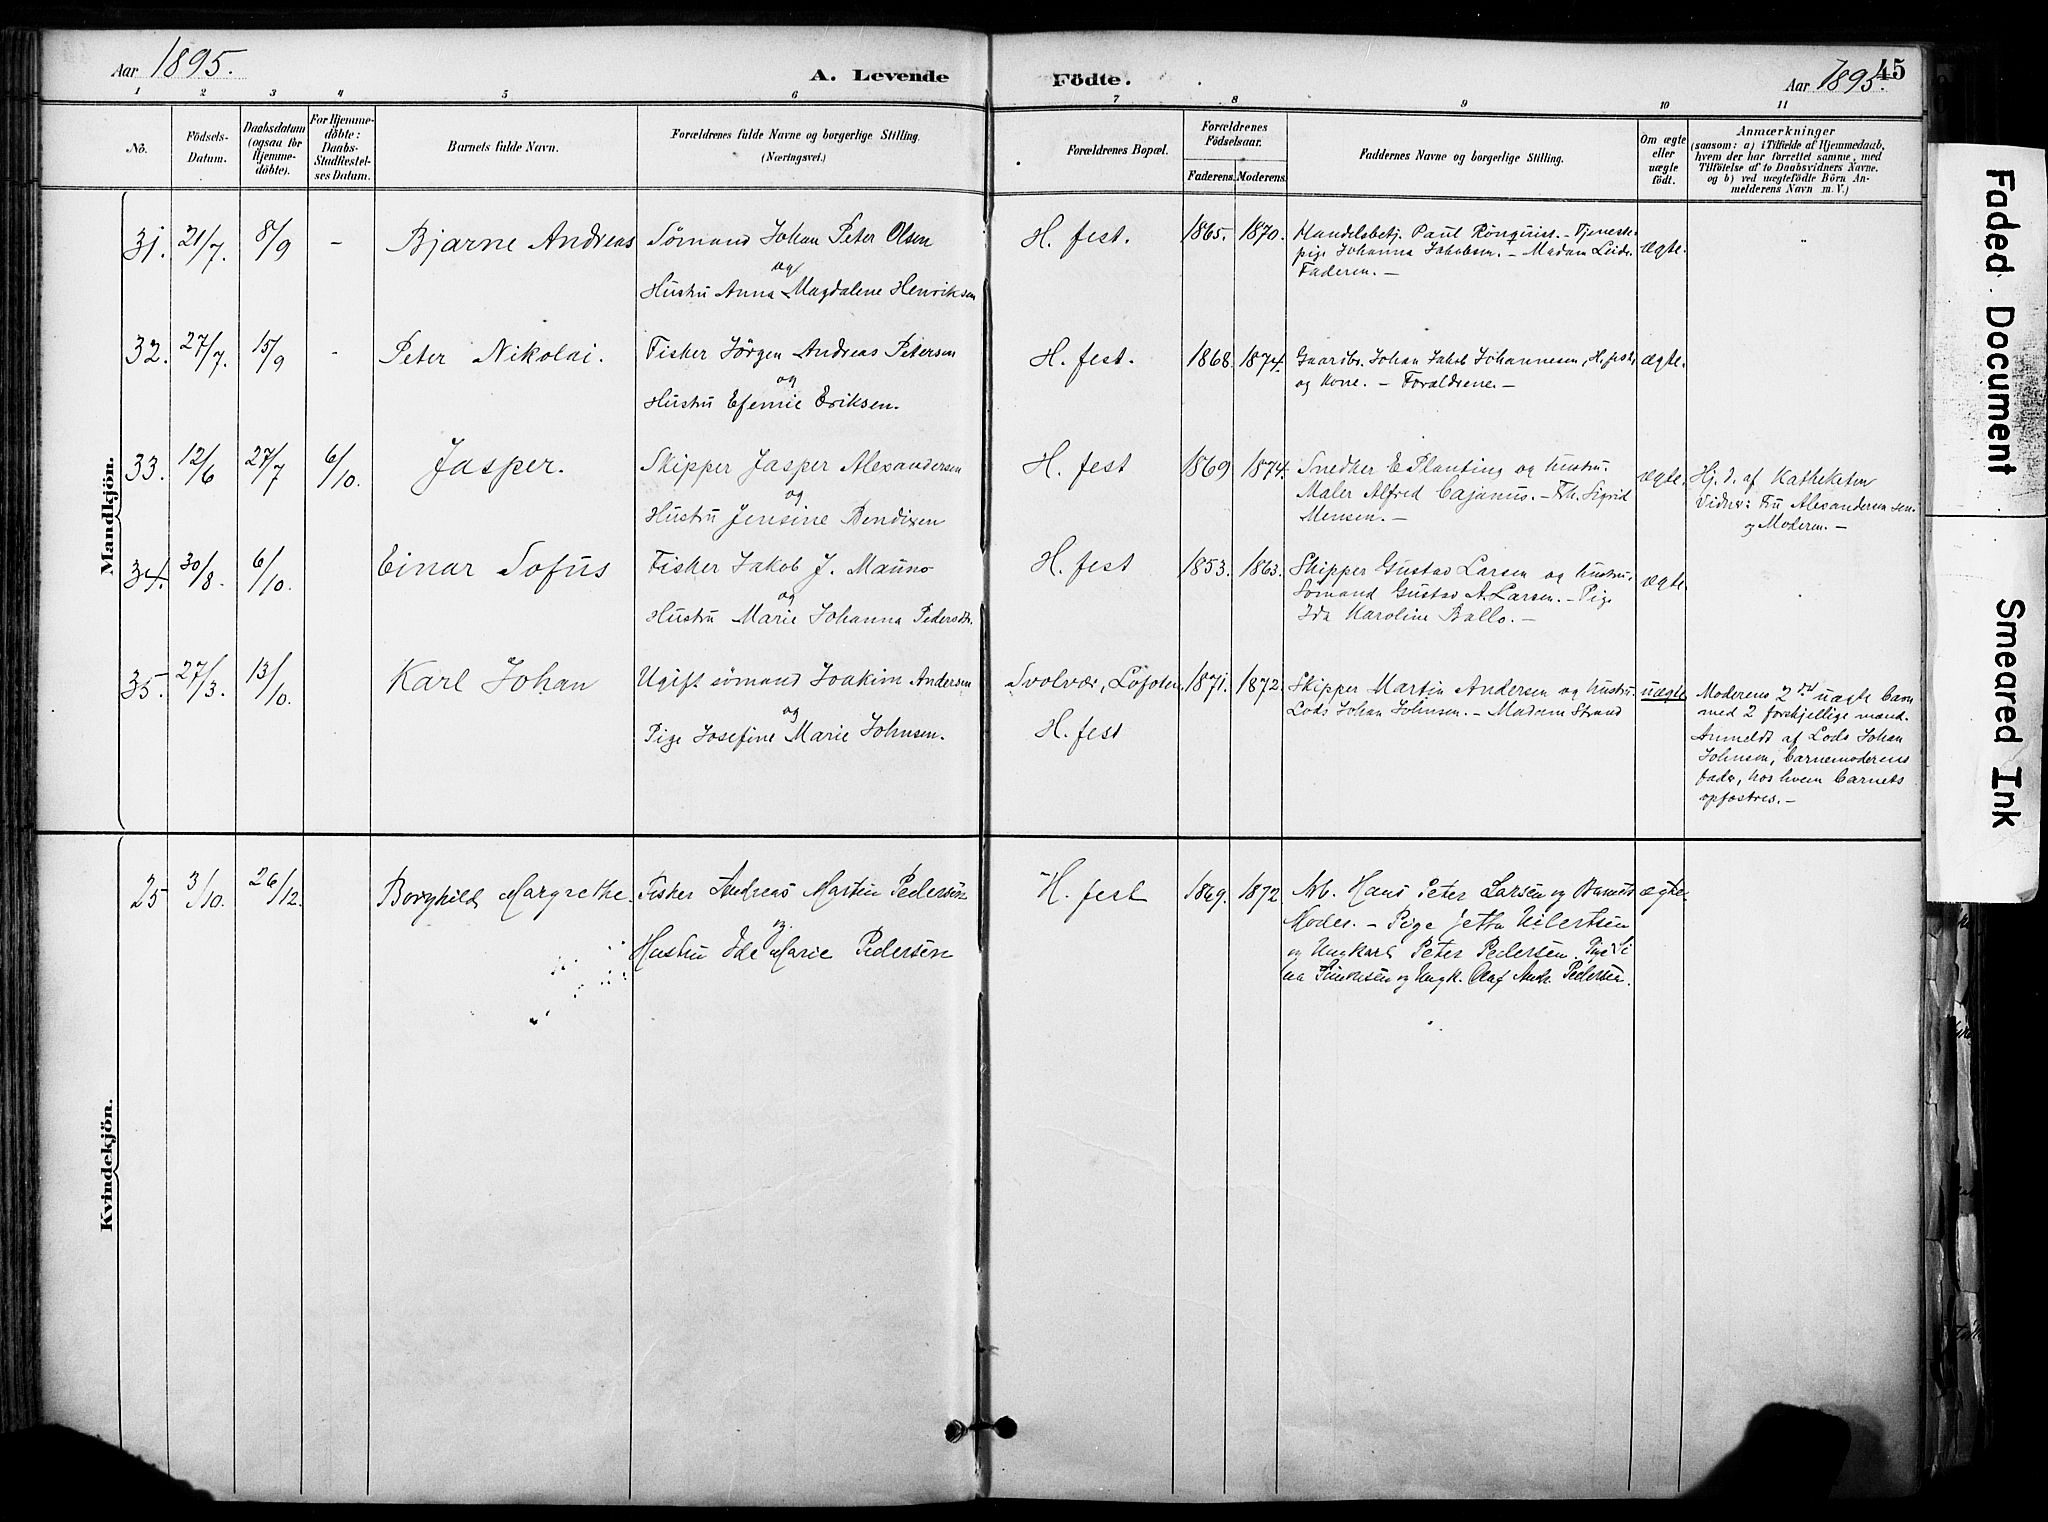 Aar 1895.
A. Levende
Födte.
Aar 1895.
45
1 2 3 4 5 6 7 8 9 10 11
No.
Födsels-
Datum.
Daabsdatum
(ogsaa for
Hjemme-
döbte).
For Hjemme-
döbte:
Daabs-
Stadfæstel-
ses Datum.
Barnets fulde Navn.
Forældrenes fulde Navne og borgerlige Stilling.
(Næringsvei.)
Forældrenes Bopæl.
Forældrenes
Födselsaar.
Faderens. Moderens.
Faddernes Navne og borgerlige Stilling.
Om ægte
eller
uægte
födt.
Anmærkninger
(saasom: a) i Tilfælde af Hjemmedaab,
hvem der har forrettet samme, med
Tilföielse af to Daabsvidners Navne.
og b) ved uægtefödte Börn An-
melderens Navn m. V.)
Mandkjön.
31. 21/7. 8/9 - Bjarne Andreas
Sømand Johan Peter Olsen
og
Hustru Anna Magdalene Henriksen
H. fest. 1865. 1870.
Handelsbetj. Paul Rönquist. - Tjeneste-
pige Johanna Jakobsen. - Madam
Faderen. -
ægte.
32. 27/7. 15/9 - Peter Nikolai.
Fisker Jörgen Andreas Petersen
og
Hustru Efemie Eriksen.
H. fest. 1868. 1874.
Gaardbr. Johan Jakob Johannesen, H. fest,
og Kone. - Forældrene. -
ægte.
33. 12/6 27/7 6/10. Jasper.
Skipper Jasper Alexandersen
og
Hustru Jensine Bendixen
H. fest 1869 1874.
Snedker E Planting og hustru.
Maler Alfred Cajanus. - Frk. Sigrid
Mensen. -
ægte.
Hj. d. af Katheketen
Vidner: Fru Alexandersen sen.
og Moderen. -
34. 30/8. 6/10. Einar Sofus
Fisker Jakob J. Mauno
og
Hustru Marie Johanna Pedersdtr.
H. fest 1853. 1863.
Skipper Gustav Larsen og hustru.
Sømand Gustav A. Larsen. - Pige
Ida Karoline Ballo. -
ægte.
35. 27/3. 13/10 Karl Johan
Ugift sømand Joakim Andersen
og
Pige Josefine Marie Johnsen.
Svolvær, Lofoten
H. fest
1871. 1872.
Skipper Martin Andersen og hustru.
Lods Johan Johnsen. - Madam Strand
uægte
Moderens 2det uægte barn
med 2 forskjellige mænd.
Anmeldt af Lods Johan
Johnsen, barnemoderens
fader, hos hvem barnet
opfostres. -
Kvindekjön.
25 3/10. 26/12. Borghild Margrethe.
Fisker Andreas Martin Pedersen
og
Hustru Ida Marie Pedersen
H. fest 1869. 1872
Arb. Hans Peter Larsen og Barnets
Moder. - Pige Jetta Eilertsen
og Ungkarl Peter Pedersen.
Simonsen og Ungk. Olaf Andr. Pedersen.
ægte.
Faded Document
Smeared Ink